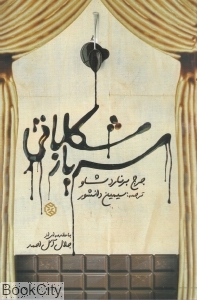 سرباز شکلاتی
جرج برنارد شاو
ترجمه: سیمین دانشور
با مقدمه‌ای از
جلال آل احمد
BookCity
www.bookcity.org